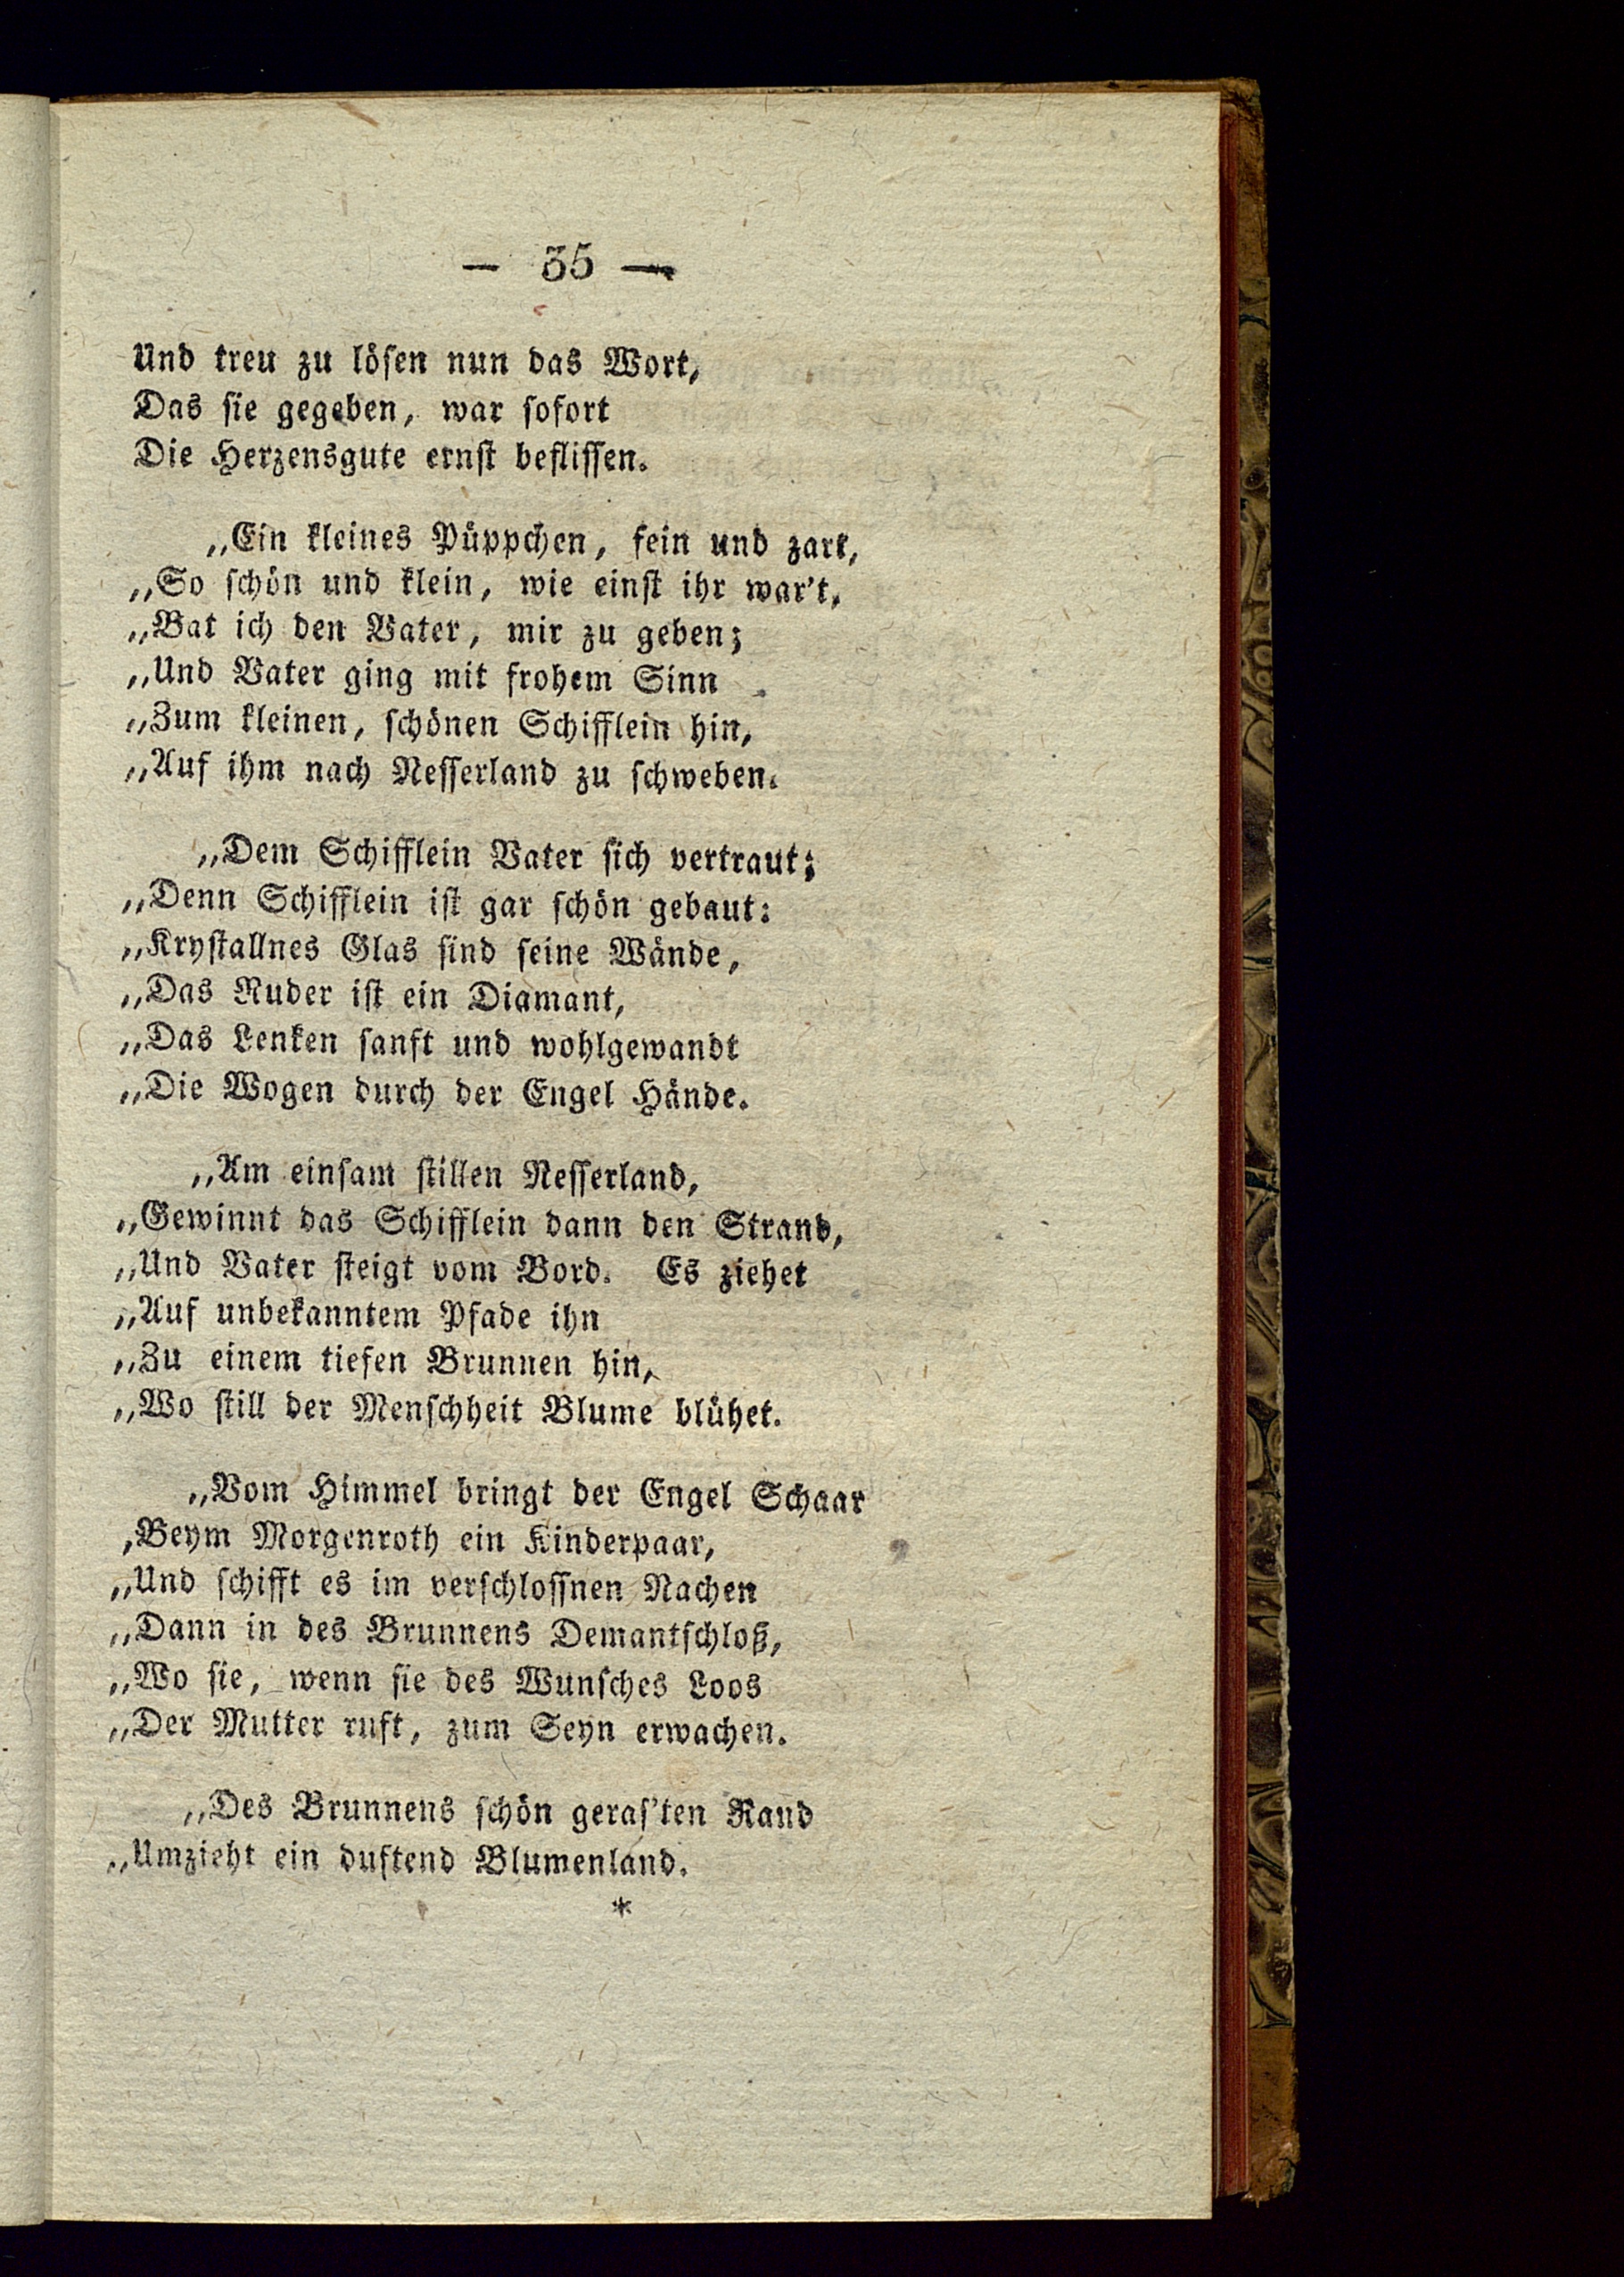 — 35 —
Und treu zu lösen nun das Wort,
Das sie gegeben, war sofort
Die Herzensgute ernst beflissen.
„Ein kleines Püppchen, fein und zart,
„So schön und klein, wie einst ihr war't,
„Bat ich den Vater, mir zu geben;
„Und Vater ging mit frohem Sinn
„Zum kleinen, schönen Schifflein hin,
„Auf ihm nach Nesserland zu schweben.
„Dem Schifflein Vater sich vertraut;
„Denn Schifflein ist gar schön gebaut:
„Krystallnes Glas sind seine Wände,
„Das Ruder ist ein Diamant,
„Das Lenken sanft und wohlgewandt
„Die Wogen durch der Engel Hände.
„Am einsam stillen Nesserland,
„Gewinnt das Schifflein dann den Strand,
„Und Vater steigt vom Bord. Es ziehet
„Auf unbekanntem Pfade ihn
„Zu einem tiefen Brunnen hin,
„Wo still der Menschheit Blume blühet.
„Vom Himmel bringt der Engel Schaar
‚Beym Morgenroth ein Kinderpaar,
„Und schifft es im verschlossnen Nachen
„Dann in des Brunnens Demantschloß,
„Wo sie, wenn sie des Wunsches Loos
„Der Mutter ruft, zum Seyn erwachen.
„Des Brunnens schön geras'ten Rand
„Umzieht ein duftend Blumenland.
*